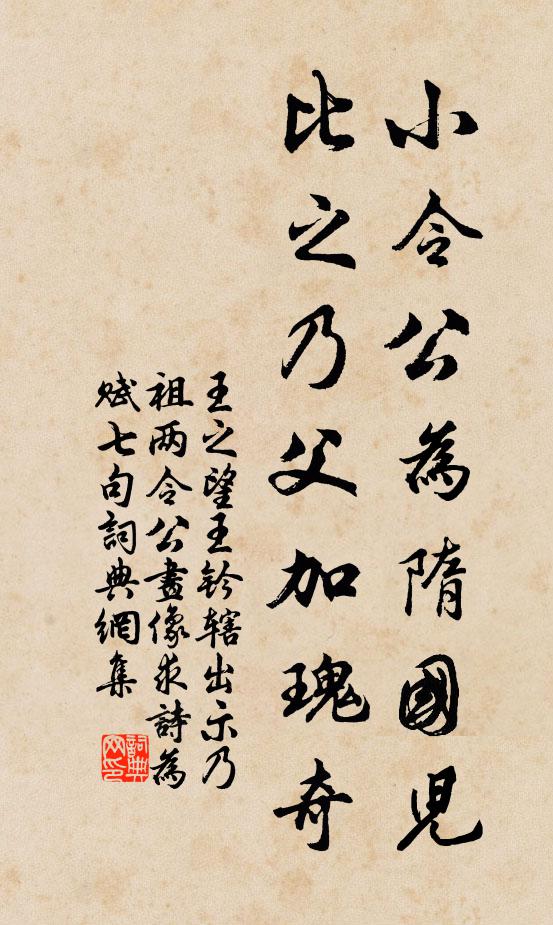 小令公為隋國児
比之乃父加瑰奇
王之望王钤辖出示乃
祖两令公畫像求詩為
赋七句詞典網集
詞典
网印